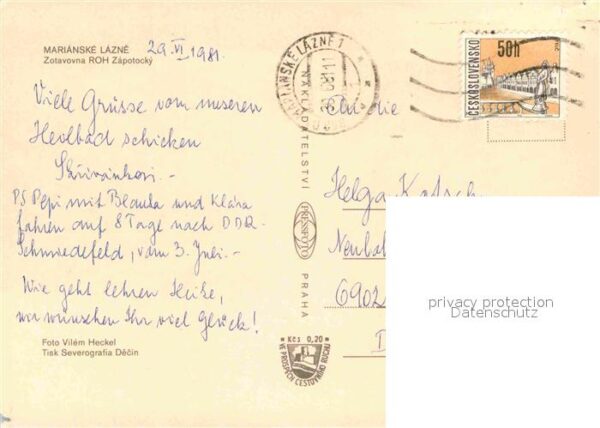 MARIÁNSKÉ LÁZNĚ 29.VI.1981.
Zotavovna ROH Zápotocký
Viele Grüsse vom unseren
Heulbad schicken
Skřivánkovi.-
PS Pepi mit Blaula und Klára
fahren auf 8 Tage nach DDR-
Schmiedefeld, vom 3. Juli.-
Wie geht Ihren Heike,
wir wünschen Ihr viel Glück!
Foto Vilém Heckel
Tisk Severografia Děčín
NAKLADATELSTVÍ
PRESSFOTO
PRAHA
MARIÁNSKÉ LÁZNĚ 1
ČESKOSLOVENSKO
50h
An die
Helga
6902
D
Kčs 0,20
VE PROSPĚCH CESTOVNÍHO RUCHU
privacy protection
Datenschutz